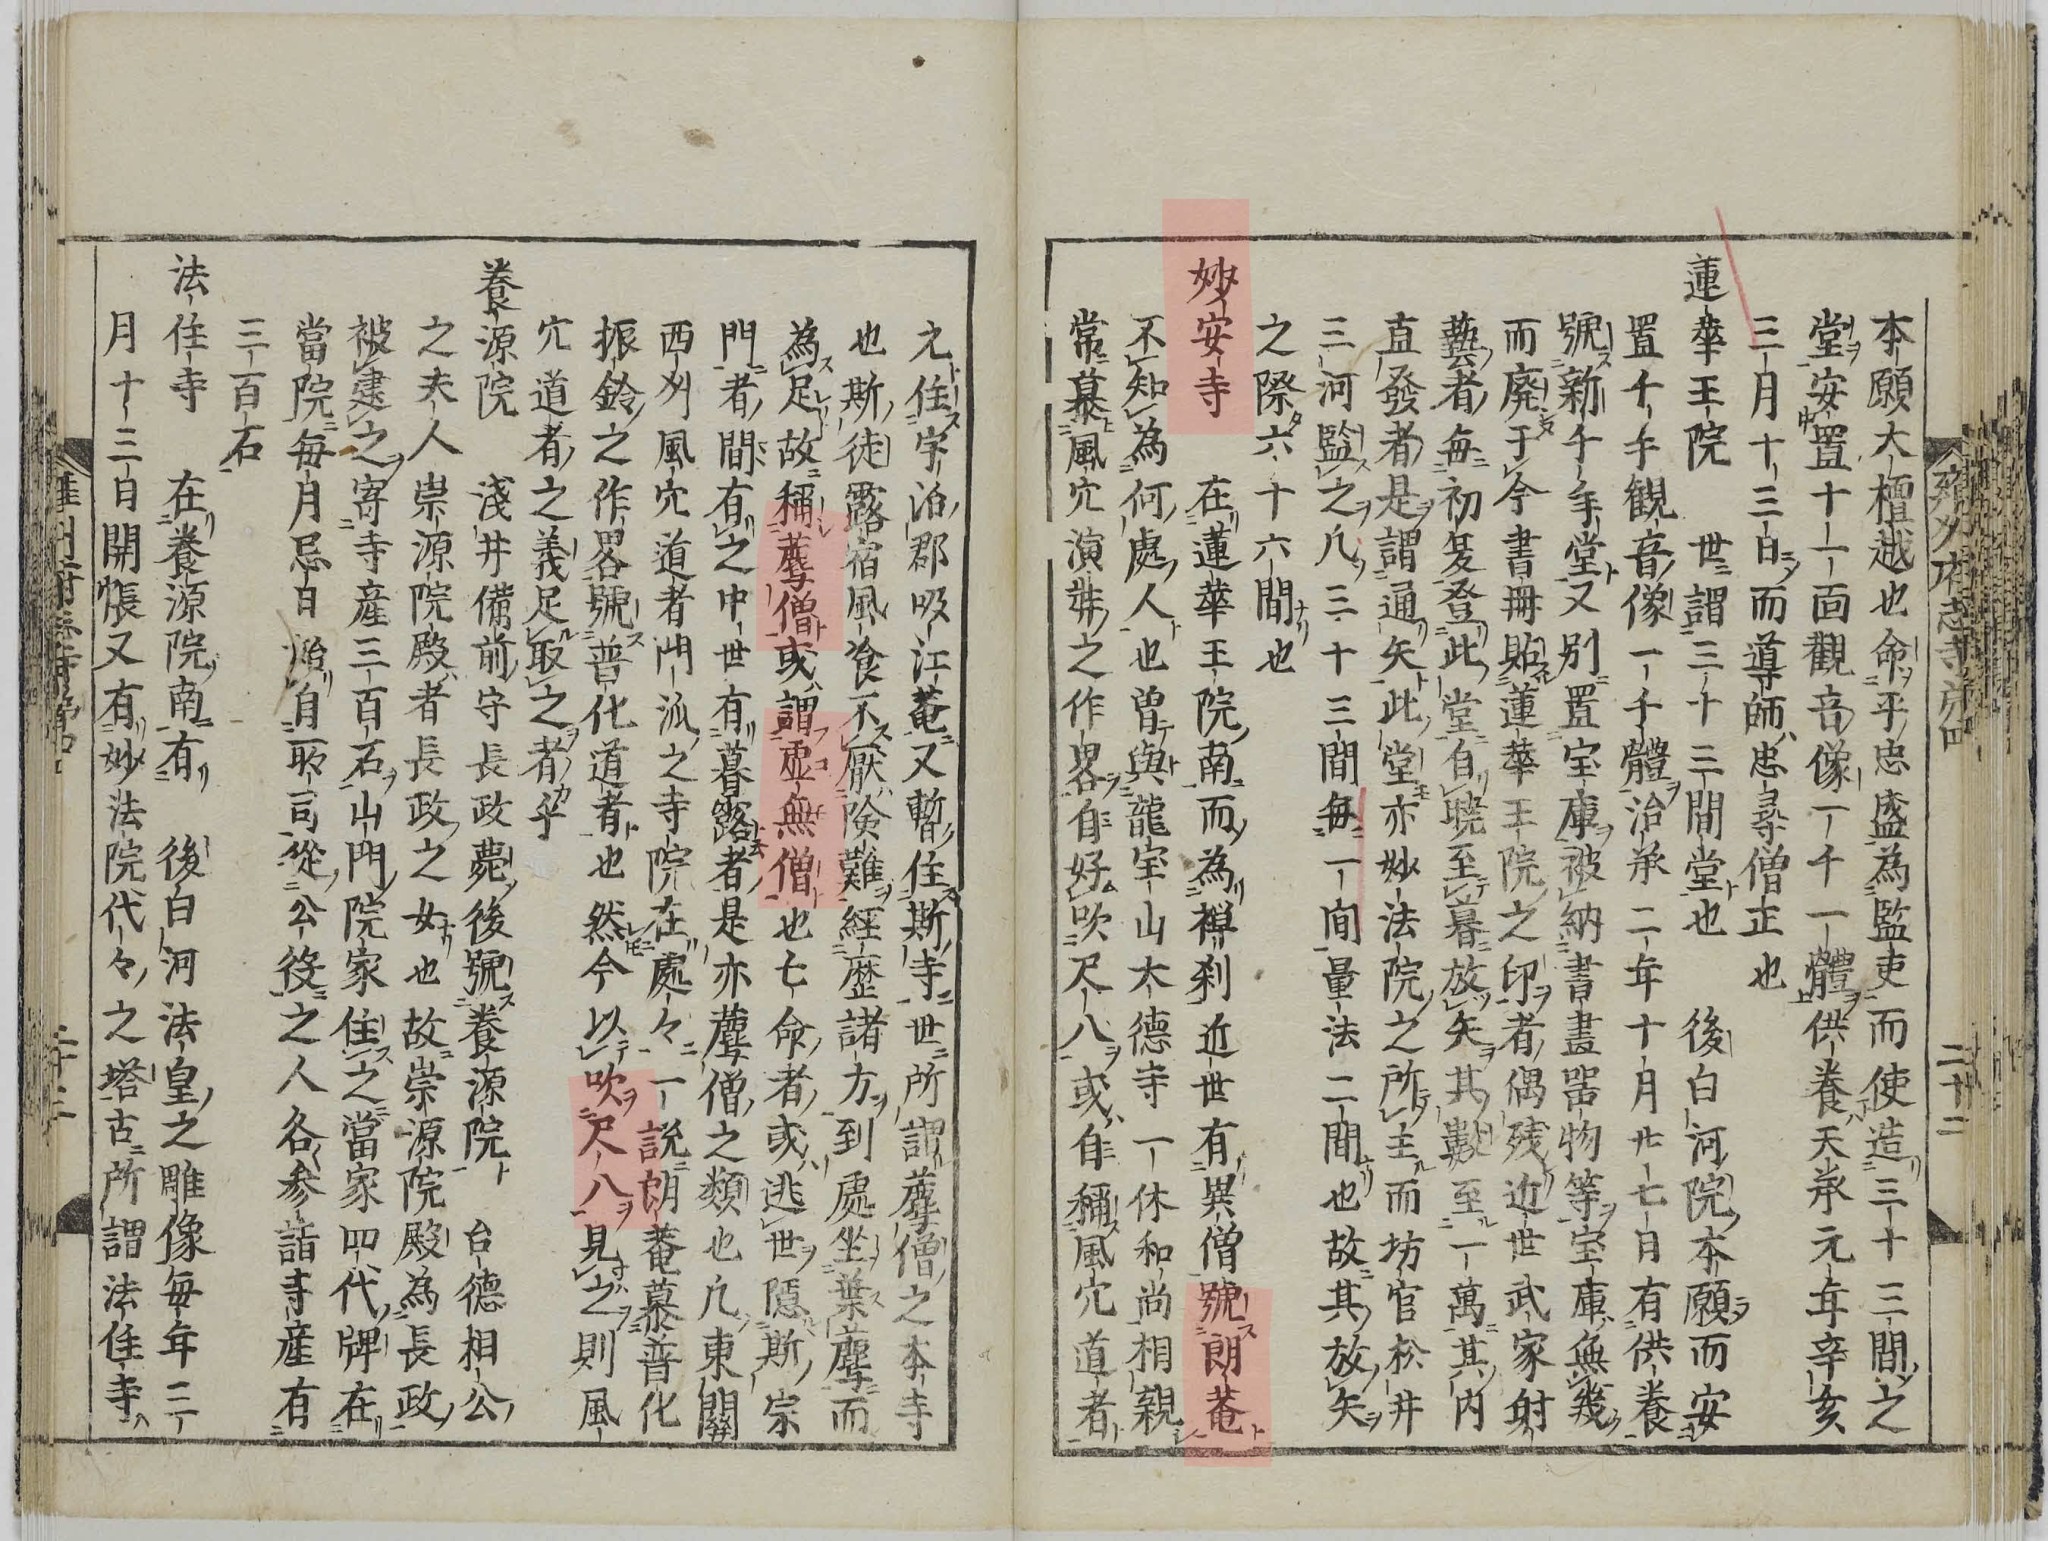 本願大檀越也命平忠盛為監吏而使造三十三間之
堂安置十一面觀音像一千一體供養天承元年辛亥
三月十三日而導師忠尋僧正也
蓮華王院　世謂三十三間堂也　後白河院本願而安
置千手観音像一千體治承二年十月廿七日有供養
號新千手堂又別置宝庫被納書畫噐物等宝庫無幾
而廃于今書冊貼蓮華王院之印者偶残近世武家射
藝者毎初夏登此堂自曉至暮放矢其數至一萬其内
直發者是謂通矢此堂亦妙法院之所主而坊官松井
三河監之凡三十三間毎一間量法二間也故其放矢
之際六十六間也
妙安寺　在蓮華王院南而為禅刹近世有異僧號朗菴
不知為何處人也曽與龍宝山大德寺一休和尚相親
常慕風穴演奘之作畧自好吹尺八或自稱風穴道者
元住宇治郡吸江菴又暫住斯寺世所謂薦僧之本寺
也斯徒露宿風飡不厭険難經歴諸方到處坐葉薦而
為足故稱薦僧或謂虚無僧也亡命者或逃世隠斯宗
門者間有之中世有暮露者是亦薦僧之類也凡東關
西州風穴道者門派之寺院在處々一説朗菴慕普化
振鈴之作畧號普化道者也然今以吹尺八見之則風
穴道者之義足取之者乎
養源院　淺井備前守長政薨後號養源院　台德相公
之夫人崇源院殿者長政之女也故崇源院殿為長政
被建之寄寺産三百石山門院家住之當家四代牌在
當院毎月忌日瀡自所司從公役之人各参詣寺産有
三百石
法住寺　在養源院南有　後白河法皇之雕像毎年二
月十三日開帳又有妙法院代々之塔古所謂法住寺
雍州府志寺第四
二十二